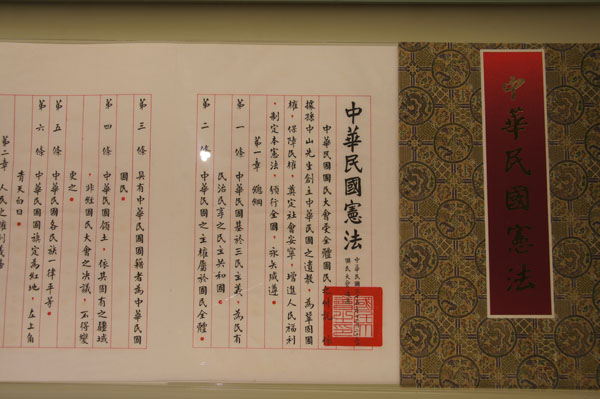 中華民國憲法
中華民國憲法
中華民國
國民大會
中華民國國民大會受全體國民之付託，依
據孫中山先生創立中華民國之遺教，為鞏固國
權，保障民權，奠定社會安寧，增進人民福利
，制定本憲法，頒行全國，永矢咸遵。
第一章 總綱
第一條 中華民國基於三民主義，為民有
民治民享之民主共和國。
第二條 中華民國之主權屬於國民全體。
第三條 具有中華民國國籍者為中華民國
國民。
第四條 中華民國領土，依其固有之疆域
，非經國民大會之决議，不得變
更之。
第五條 中華民國各民族一律平等。
第六條 中華民國國旗定為紅地，左上角
青天白日。
第二章 人民之權利義務